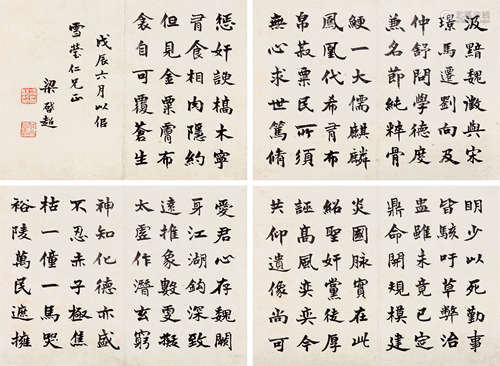 汲黯魏徵與宋
璟馬遷劉向及
仲舒閎學德度
兼名節純粹骨
鯁一大儒麒麟
鳳凰代希有布
帛菽粟民所須
無心求世篤脩
愛君心存魏闕
身江湖鈎深致
遠推象數更擬
太虛作潛玄窮
神知化德亦盛
不忍赤子極焦
枯一僮一馬哭
裕陵萬民遮擁
明少以死勤事
皆駭吁草弊治
蠱雖未竟已定
鼎命開規模建
炎國脈實在此
紹聖奸黨徒厚
誣高風奕奕今
共仰遺像尚可
愆奸諛槁木寧
胥食相肉隱約
但見金粟膚布
衾自可覆蒼生
戊辰六月以侶
雪瑩仁兄正
梁啟超